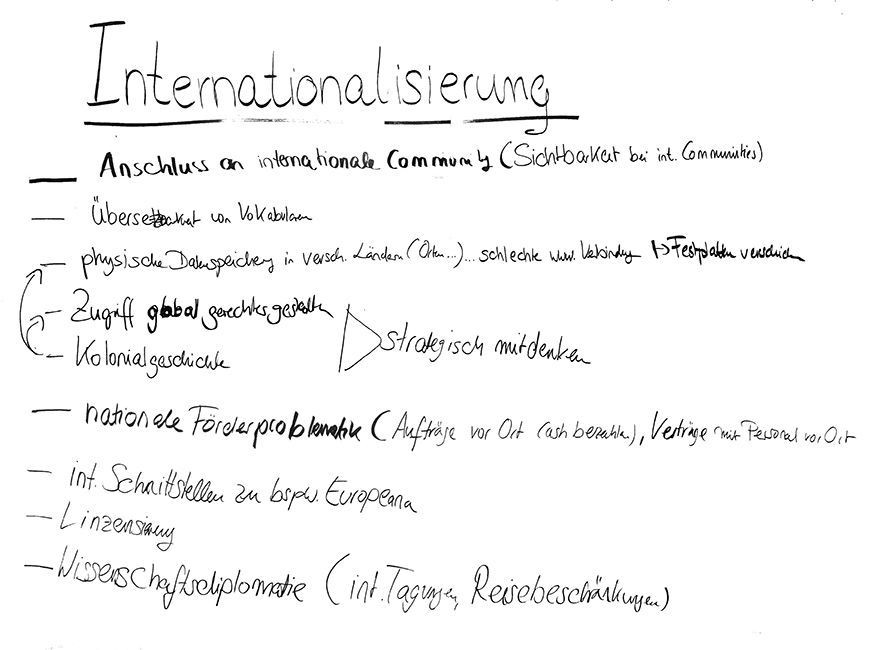 Internationalisierung
— Anschluss an internationale Community (Sichtbarkeit bei int. Communities)
— Übersetzbarkeit von Vokabularen
— physische Datenspeicherg in versch. Ländern (Orten...)... schlechte www. Verbindung |→ Festplatten verschicken
— Zugriff global gerechter gestalten
— Kolonialgeschichte
strategisch mitdenken
— nationale Förderproblematik (Aufträge vor Ort cash bezahlen), Verträge mit Personal vor Ort
— int. Schnittstellen zu bspw. Europeana
— Linzensierung
— Wissenschaftsdiplomatie (int. Tagungen, Reisebeschänkungen)